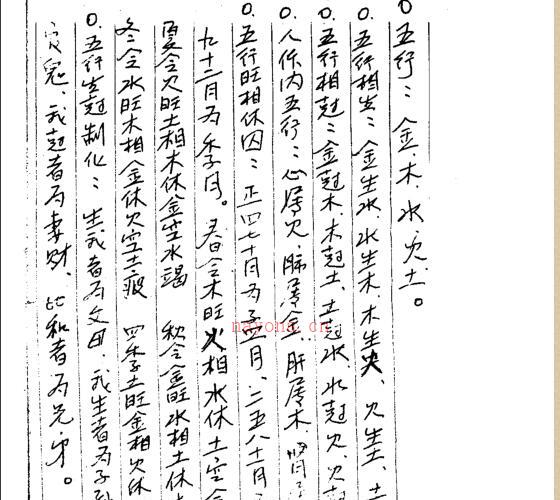 0.五行：金.木.水.火.土。
0.五行相生：金生水、水生木、木生火、火生土、土
0.五行相尅：金尅木、木尅土、土尅水、水尅火、火
0.人体内五行：心属火、肺属金、肝属木、肾
0.五行旺相休囚：正四七十月为孟月、二五八十一月
九十二月为季月。春令木旺火相水休土空金
夏令火旺土相木休金空水竭 秋令金旺水相土休
冬令水旺木相金休火空土 四季土旺金相火休
0.五行生尅制化：生我者为父母、我生者为子
官鬼、我尅者为妻财、比和者为兄弟。
nayona.cn